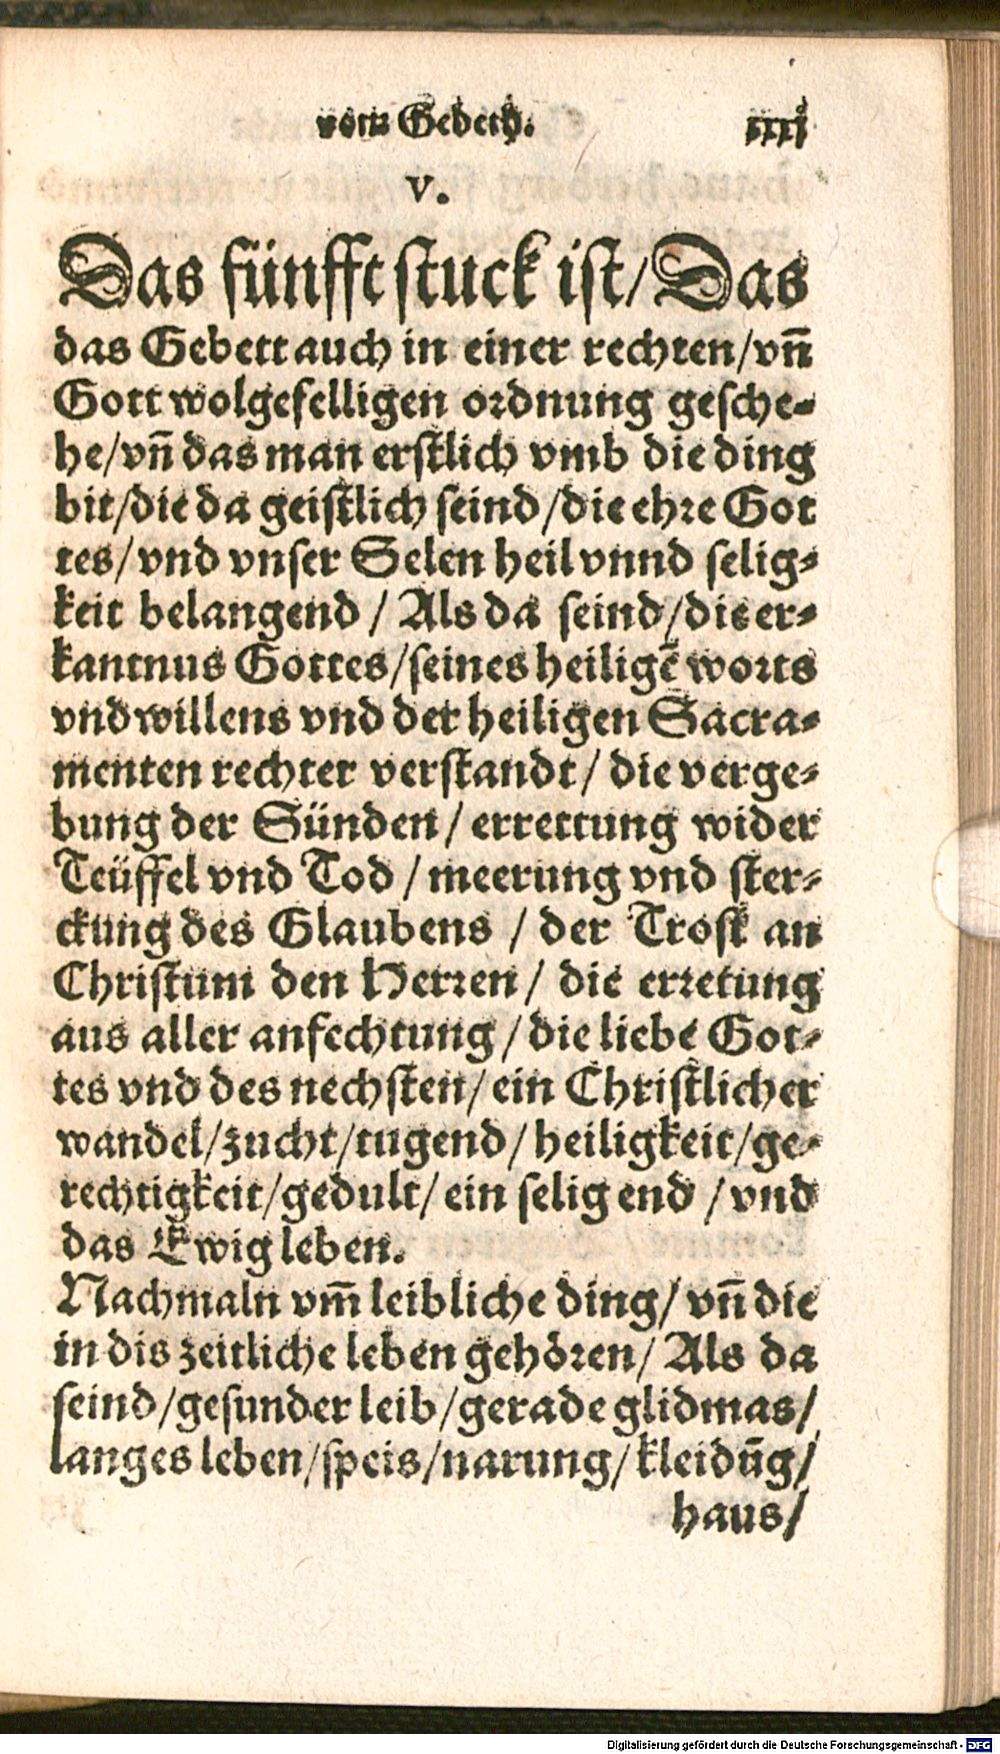 vom Gebeth. iiij
V.
Das fünfft stuck ist/ Das
das Gebett auch in einer rechten/ vñ
Gott wolgefelligen ordnung gesche-
he/ vñ das man erstlich vmb die ding
bit/ die da geistlich seind/ die ehre Got
tes/ vnd vnser Selen heil vnnd selig-
keit belangend/ Als da seind/ die er-
kantnus Gottes/ seines heiligē worts
vnd willens vnd der heiligen Sacra-
menten rechter verstandt/ die verge-
bung der Sünden/ errettung wider
Teüffel vnd Tod/ meerung vnd ster-
ckung des Glaubens/ der Trost an
Christum den Herren/ die erretung
aus aller anfechtung/ die liebe Got-
tes vnd des nechsten/ ein Christlicher
wandel/ zucht/ tugend/ heiligkeit/ ge-
rechtigkeit/ gedult/ ein selig end/ vnd
das Ewig leben.
Nachmaln vm̃ leibliche ding/ vñ die
in dis zeitliche leben gehören/ Als da
seind/ gesunder leib/ gerade glidmas/
langes leben/ speis/ narung/ kleidūg/
haus/
Digitalisierung gefördert durch die Deutsche Forschungsgemeinschaft - DFG